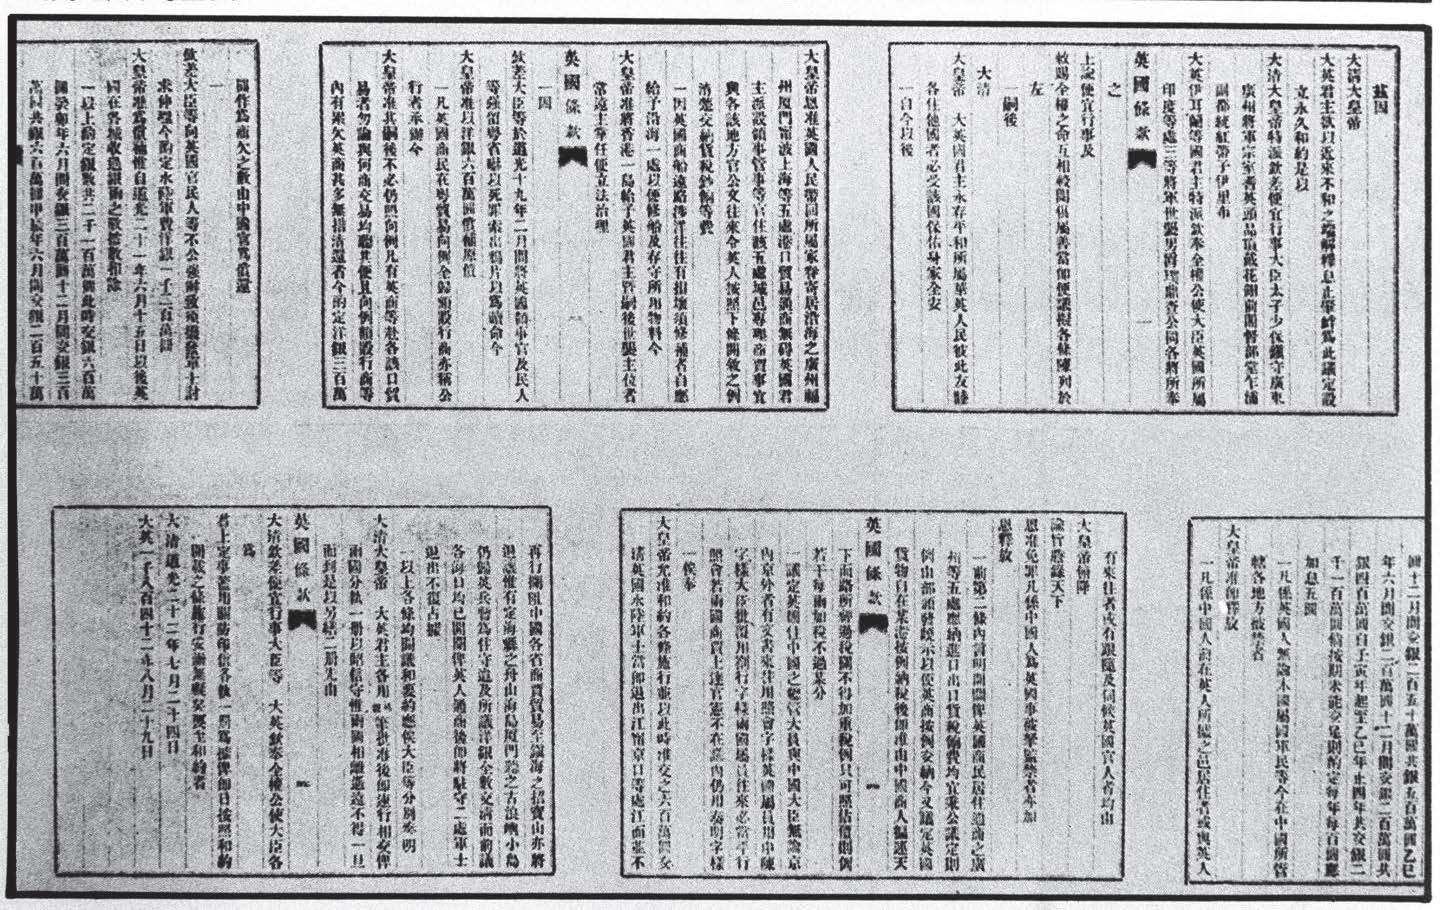 茲因
大清大皇帝
大英君主欲以近來不和之端解釋息止肇衅為此議定設
立永久和約是以
大清大皇帝特派欽差便宜行事大臣太子少保鎮守廣東
廣州將軍宗室耆英頭品頂戴花翎前閣督部堂乍浦
副都統紅帶子伊里布
大英伊耳蘭等國君主特派欽奉全權公使大臣英國所屬
印度等處三等將軍世襲男爵璞鼎查公同各將所奉
英國條款 一
之
上諭便宜行事及
敕賜全權之命互相較閱俱屬善當即便議擬各條陳列於
左
一嗣後
大清
大皇帝 大英國君主永存平和所屬華英人民彼此友睦
各住他國者必受該國保佑身家全安
一自今以後
大皇帝恩准英國人民帶同所屬家眷寄居沿海之廣州福
州廈門寧波上海等五處港口貿易通商無礙英國君
主派設領事管事等官住該五處城邑專理商賈事宜
與各該地方官公文往來令英人按照下條開敘之例
清楚交納貨稅鈔餉等費
一因英國商船遠路涉洋往往有損壞須修補者自應
給予沿海一處以便修船及存守所用物料今
大皇帝准將香港一島給予英國君主暨嗣後世襲主位者
常遠主掌任便立法治理
英國條款 二
一因
欽差大臣等於道光十九年二月間將英國領事官及民人
等強留粵省嚇以死罪索出鴉片以為贖命今
大皇帝准以洋銀六百萬圓償補原價
一凡英國商民在粵貿易向例全歸額設行商亦稱公
行者承辦今
大皇帝准其嗣後不必仍照向例凡有英商等赴各該口貿
易者勿論與何商交易均聽其便且向例額設行商等
內有累欠英商甚多無措清還者今酌定洋銀三百萬
圓作為商欠之數由中國官為償還
一
欽差大臣等向英國官民人等不公強辦致須撥發軍士討
求伸理今酌定水陸軍費洋銀一千二百萬圓
大皇帝准為償補惟自道光二十一年六月十五日以後英
國在各城收過銀兩之數按數扣除
一以上酌定銀數共二千一百萬圓此時交銀六百萬
圓癸卯年六月間交銀三百萬圓十二月間交銀三百
萬圓共銀六百萬圓甲辰年六月間交銀二百五十萬
圓十二月間交銀二百五十萬圓共銀五百萬圓乙巳
年六月間交銀二百萬圓十二月間交銀二百萬圓共
銀四百萬圓自壬寅年起至乙巳年止四年共交銀二
千一百萬圓倘按期未能交足則酌定每年每百圓應
加息五圓
一凡係英國人無論本國屬國軍民等今在中國所管
轄各地方被禁者
大皇帝准即釋放
一凡係中國人前在英人所據之邑居住者或與英人
有來往者或有跟隨及伺候英國官人者均由
大皇帝俯降
諭旨謄錄天下
恩准免罪凡係中國人為英國事被拏監禁者亦加
恩釋放
一前第二條內言明開關俾英國商民居住通商之廣
州等五處應納進口出口貨稅餉費均宜秉公議定則
例由部頒發曉示以便英商按例交納今又議定英國
貨物自在某港按例納稅後即准由中國商人遍運天
英國條款
下而路所經過稅關不得加重稅例只可照估價則例
若干每兩加稅不過某分
一議定英國住中國之總管大員與中國大臣無論京
內京外者有文書來往用照會字樣英國屬員用申陳
字樣大臣批覆用劄行字樣兩國屬員往來必當平行
照會若兩國商賈上達官憲不在議內仍用奏明字樣
一俟奉
大皇帝允准和約各條施行並以此時准交之六百萬圓交
清英國水陸軍士當即退出江寧京口等處江面並不
再行攔阻中國各省商賈貿易至鎮海之招寶山亦將
退讓惟有定海縣之舟山海島廈門廳之古浪嶼小島
仍歸英兵暫為住守迨及所議洋銀全數交清而前議
各海口均已開關俾英人通商後即將駐守二處軍士
退出不復占據
一以上各條均關議和要約應俟大臣等分別奏明
大清大皇帝 大英君主各用硃親筆批准後即速行相交俾
兩國分執一冊以昭信守惟兩國相離遙遠不得一旦
而到是以另繕二冊先由
英國條款
大清欽差便宜行事大臣等 大英欽奉全權公使大臣各
為
君上定事蓋用關防印信各執一冊為據俾即日按照和約
開載之條施行妥辦無礙矣要至和約者
大清道光二十二年七月二十四日
大英一千八百四十二年八月二十九日